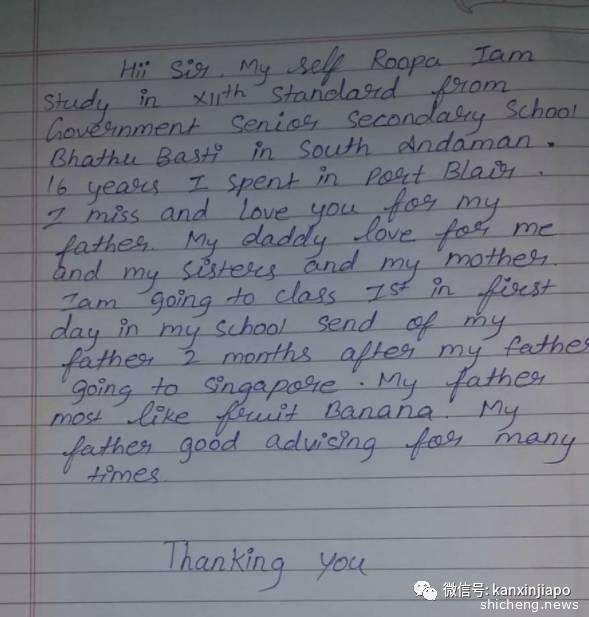 Hii Sir. My self Roopa Iam
Study in XIIth Standard from
Government Senior Secondary School
Bhathu Basti in South Andaman.
16 years I spent in Port Blair.
I miss and love you for my
father. My daddy love for me
and my sisters and my mother.
Iam going to class Ist in first
day in my school send of my
father 2 months after my father
going to singapore. My father
most like fruit Banana. My
father good advising for many
times.
Thanking you
微信号: kanxinjiapo
shicheng.news